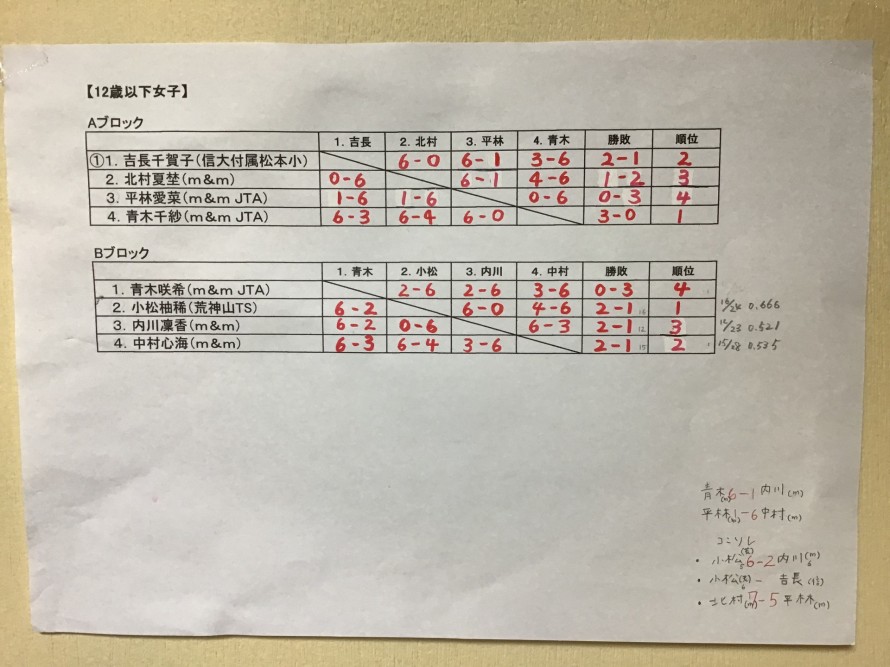 【12歳以下女子】
Aブロック
1. 吉長 2. 北村 3. 平林 4. 青木 勝敗 順位
①1. 吉長千賀子(信大付属松本小) 6-0 6-1 3-6 2-1 2
2. 北村夏埜(m&m) 0-6 6-1 4-6 1-2 3
3. 平林愛菜(m&m JTA) 1-6 1-6 0-6 0-3 4
4. 青木千紗(m&m JTA) 6-3 6-4 6-0 3-0 1
Bブロック
1. 青木 2. 小松 3. 内川 4. 中村 勝敗 順位
1. 青木咲希(m&m JTA) 2-6 2-6 3-6 0-3 4
2. 小松柚稀(荒神山TS) 6-2 6-0 4-6 2-1 1 16/24 0.666
3. 内川凜香(m&m) 6-2 0-6 6-3 2-1 3 12/23 0.521
4. 中村心海(m&m) 6-3 6-4 3-6 2-1 2 15/28 0.535
青木(m)6-1内川(m)
平林(m)1-6中村(m)
コンソレ
・小松 6-2内川(m)
・小松 - 吉長(信)
・北村(m)7-5平林(m)